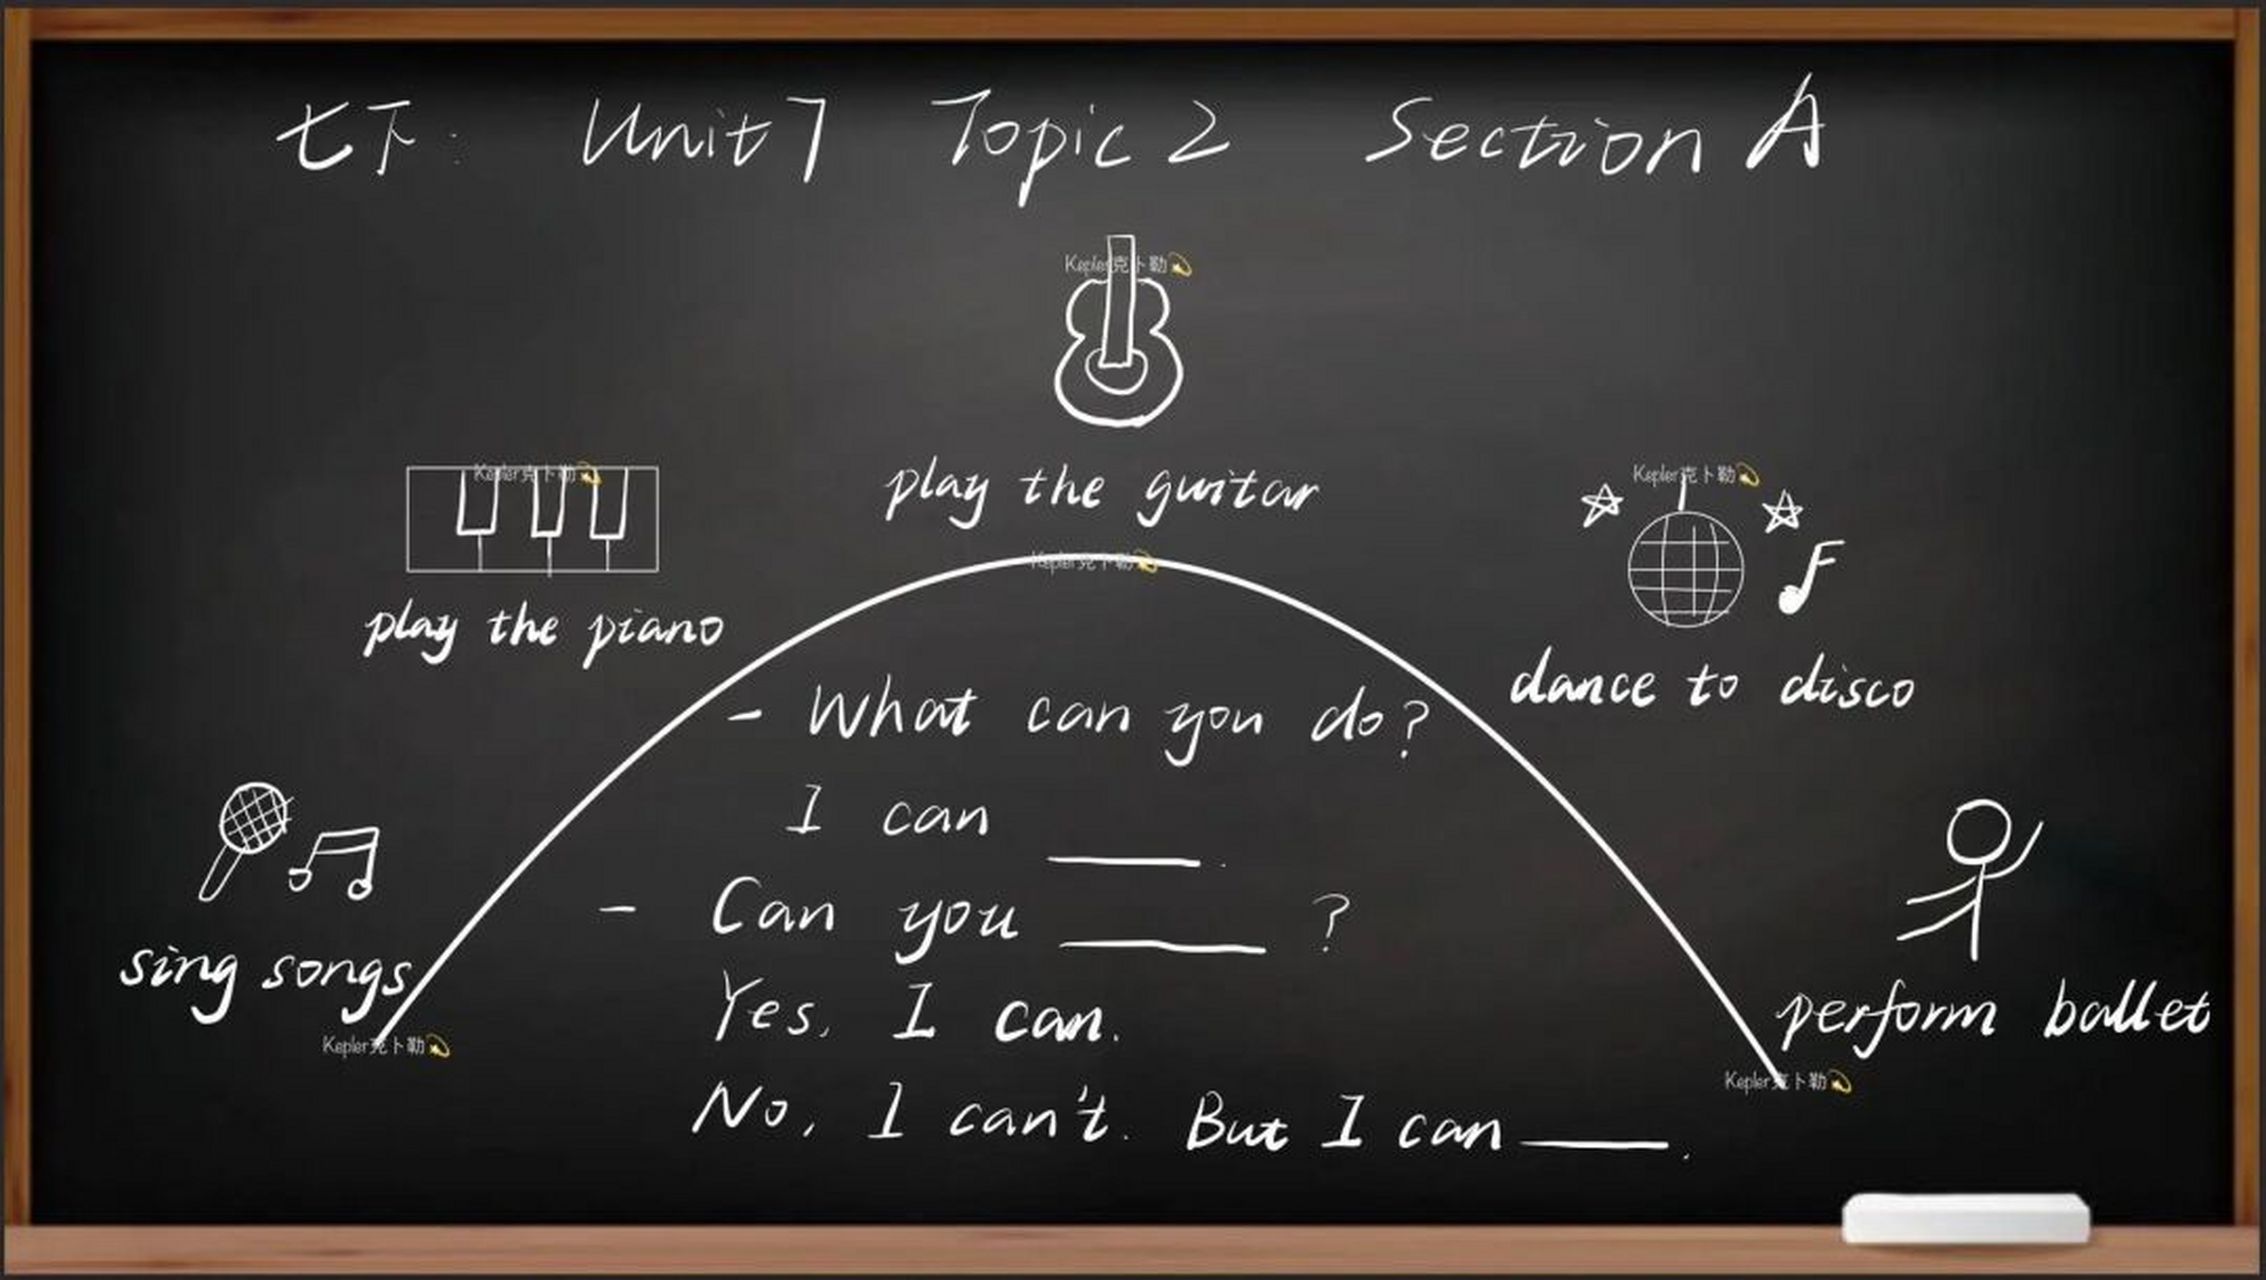 七下: Unit 7 Topic 2 Section A
Kepler克卜勒💫
play the guitar
Kepler克卜勒💫
play the piano
Kepler克卜勒💫
dance to disco
Kepler克卜勒💫
- What can you do?
I can ____.
- Can you ____ ?
Yes, I can.
No, I can't. But I can ____.
sing songs
Kepler克卜勒💫
perform ballet
Kepler克卜勒💫